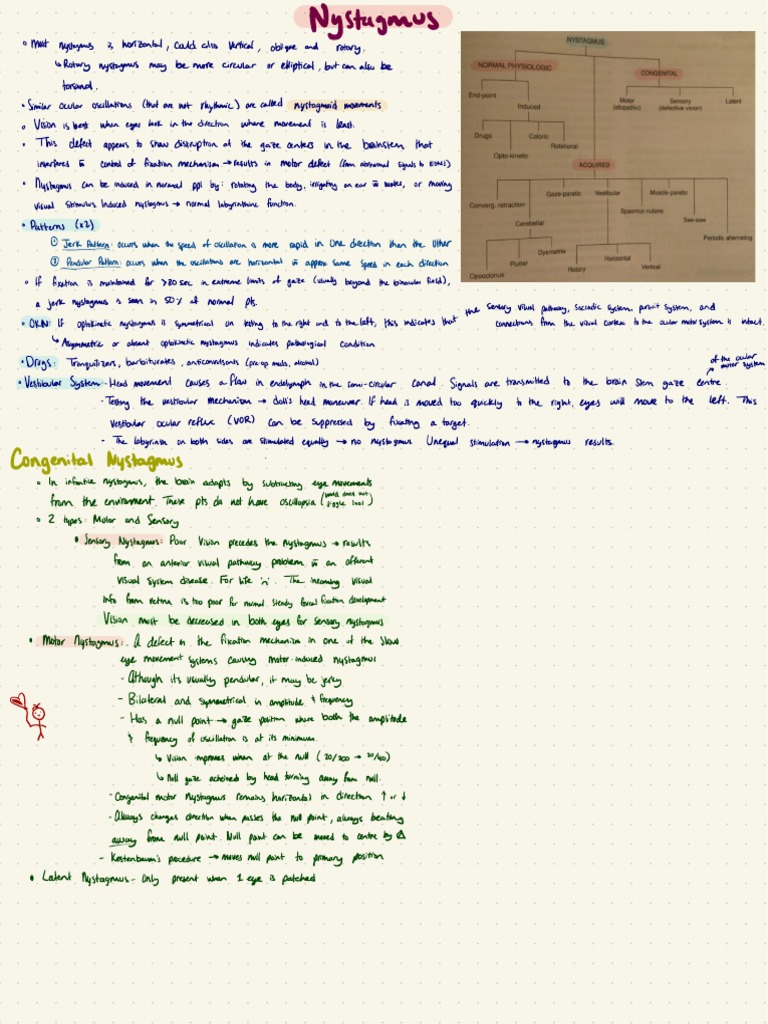 Nystagmus
• Most nystagmus is horizontal, could also vertical, oblique and rotary.
↳ Rotary nystagmus may be more circular or elliptical, but can also be
torsional.
• Similar ocular oscillations (that are not rhythmic) are called nystagmoid movements
• Vision is best when eyes look in the direction where movement is least.
• This defect appears to show disruption at the gaze centers in the brainstem that
interferes w̅ control of fixation mechanism → results in motor defect (from abnormal signals to EOMs)
• Nystagmus can be induced in normal ppl by: rotating the body, irrigating an ear w̅ water, or moving
visual stimulus. Induced nystagmus → normal labyrinthine function.
• Patterns (x2)
① Jerk Pattern: occurs when the speed of oscillation is more rapid in one direction then the other
② Pendular Pattern: occurs when the oscillations are horizontal w̅ approx same speed in each direction
• If fixation is maintained for >20 sec in extreme limits of gaze (usually beyond the binocular field),
a jerk nystagmus is seen in 50% of normal pts.
• OKN: If optokinetic nystagmus is symmetrical on testing to the right and to the left, this indicates that the sensory visual pathway, saccadic system, pursuit system, and
connections from the visual cortex to the ocular motor system is intact.
↳ Asymmetric or absent optokinetic nystagmus indicates pathological condition
• Drugs: Tranquilizers, barbiturates, anticonvulsants (pre-op meds, alcohol)
• Vestibular System - Head movement causes a flow in endolymph in the semi-circular canal. Signals are transmitted to the brain stem gaze centre.
of the ocular
motor system
- Testing the vestibular mechanism → doll's head maneuver. If head is moved too quickly to the right, eyes will move to the left. This
vestibular ocular reflux (VOR) can be suppressed by fixating a target.
- The labyrinth on both sides are stimulated equally → no nystagmus. Unequal stimulation → nystagmus results.
NYSTAGMUS
NORMAL PHYSIOLOGIC
CONGENITAL
End-point
Induced
Motor
(idiopathic)
Sensory
(defective vision)
Latent
Drugs
Caloric
Opto-kinetic
Rotational
ACQUIRED
Converg. retraction
Gaze-paretic
Vestibular
Muscle-paretic
Cerebellar
Spasmus nutans
See-saw
Periodic alternating
Opsoclonus
Flutter
Dysmetria
Rotary
Horizontal
Vertical
Congenital Nystagmus
• In infantile nystagmus, the brain adapts by subtracting eye movements
from the environment. These pts do not have oscillopsia (world does not
jiggle)
• 2 types: Motor and Sensory
• Sensory Nystagmus: Poor Vision precedes the nystagmus → results
from an anterior visual pathway problem w̅ an afferent
visual system disease. For life. The incoming visual
info from retina is too poor for normal steady foveal fixation development
Vision must be decreased in both eyes for sensory nystagmus
• Motor Nystagmus: A defect in the fixation mechanism in one of the slow
eye movement systems causing motor-induced nystagmus
- Although its usually pendular, it may be jerky
- Bilateral and symmetrical in amplitude & frequency
- Has a null point → gaze position where both the amplitude
& frequency of oscillation is at its minimum.
↳ Vision improves when at the null (20/200 → 20/40)
↳ Null gaze acheived by head turning away from null.
- Congenital motor nystagmus remains horizontal in direction ↑ or ↓
- Always changes direction when passes the null point, always beating
away from null point. Null point can be moved to centre by △
- Kestenbaum's procedure → moves null point to primary position
• Latent Nystagmus - Only present when 1 eye is patched